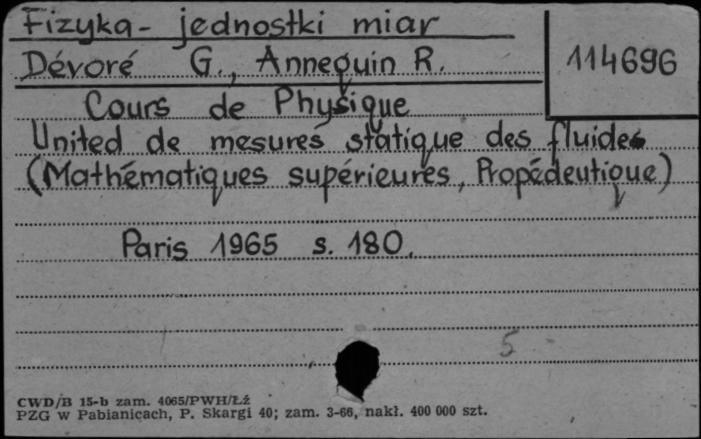 Fizyka - jednostki miar
114696
Dévoré G., Annequin R.
Cours de Physique
United de mesures statique des fluides
(Mathématiques supérieures, Propédeutique)
Paris 1965 s. 180.
5
CWD/B 15-b zam. 4065/PWH/Łż
PZG w Pabianicach, P. Skargi 40; zam. 3-66, nakł. 400 000 szt.